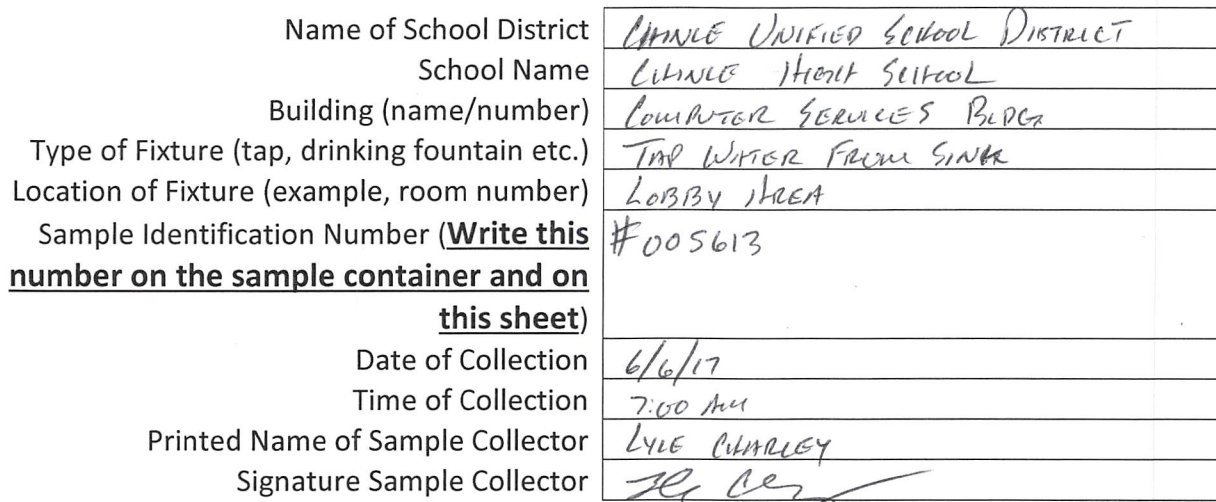 Name of School District CHINLE UNIFIED SCHOOL DISTRICT
School Name CHINLE HIGH SCHOOL
Building (name/number) COMPUTER SERVICES BLDG
Type of Fixture (tap, drinking fountain etc.) TAP WATER FROM SINK
Location of Fixture (example, room number) LOBBY AREA
Sample Identification Number (Write this #005613
number on the sample container and on
this sheet)
Date of Collection 6/6/17
Time of Collection 7:00 AM
Printed Name of Sample Collector LYLE CHARLEY
Signature Sample Collector